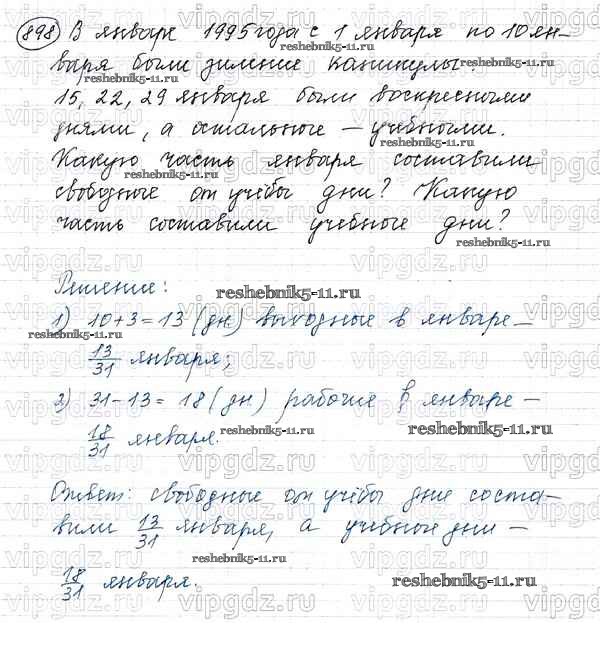 898 В январе 1995 года с 1 января по 10 ян-
варя были зимние каникулы.
15, 22, 29 января были воскресными
днями, а остальные – учебными.
Какую часть января составили
свободные от учёбы дни? Какую
часть составили учебные дни?
Решение:
1) 10+3=13 (дн.) выходные в январе –
13/31 января;
2) 31-13=18 (дн.) рабочие в январе –
18/31 января.
Ответ: свободные от учёбы дни соста-
вили 13/31 января, а учебные дни –
18/31 января.
reshebnik5-11.ru
vipgdz.ru